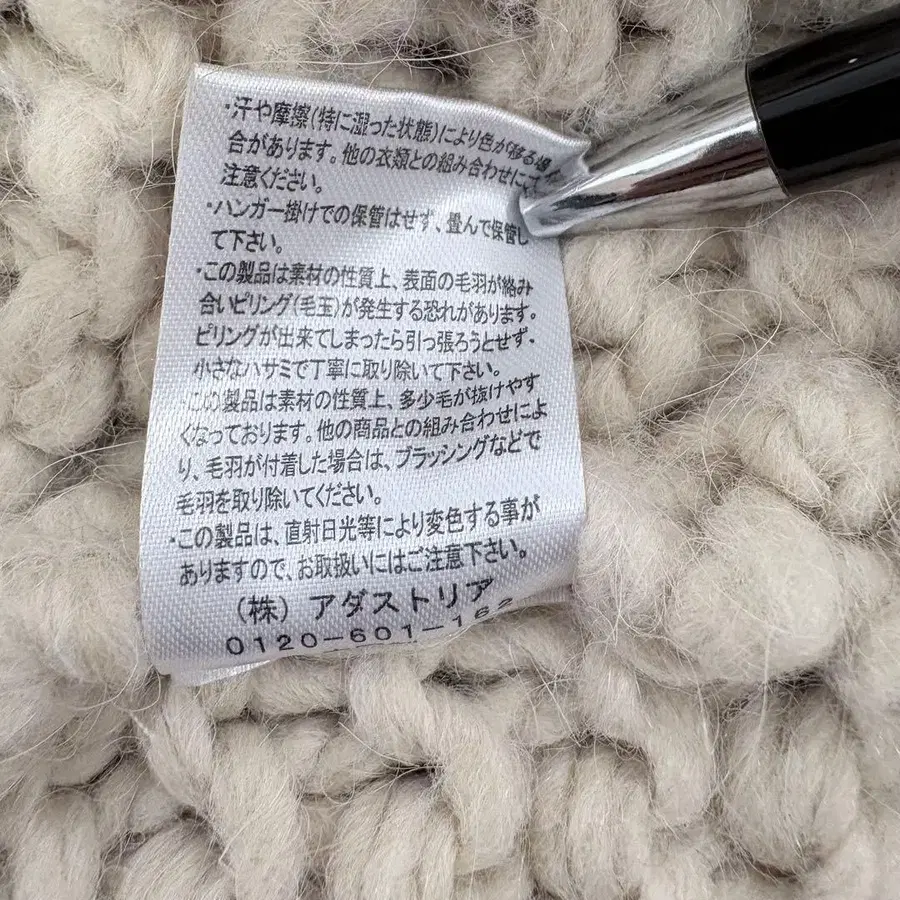 ・汗や摩擦(特に湿った状態)により色が移る場
合があります。他の衣類との組み合わせにご
注意ください。
・ハンガー掛けでの保管はせず、畳んで保管し
て下さい。
・この製品は素材の性質上、表面の毛羽が絡み
合いピリング(毛玉)が発生する恐れがあります。
ピリングが出来てしまったら引っ張ろうとせず、
小さなハサミで丁寧に取り除いて下さい。
この製品は素材の性質上、多少毛が抜けやす
くなっております。他の商品との組み合わせによ
り、毛羽が付着した場合は、ブラッシングなどで
毛羽を取り除いてください。
・この製品は、直射日光等により変色する事が
ありますので、お取扱いにはご注意下さい。
(株) アダストリア
0120-601-162